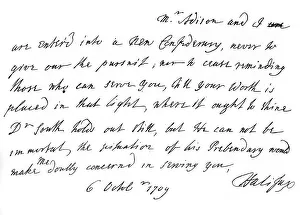 Mr Adison and I
are enter'd into a New Confederacy, never to
give over the pursuit, nor to cease reminding
those who can serve you, till your Worth is
placed in that light, where it ought to shine
Dr South holds out still, but He can not be
immortal, the situation of his Prebendary would
make me doubly concerned in serving you,
6 Octobr 1709
Halifax